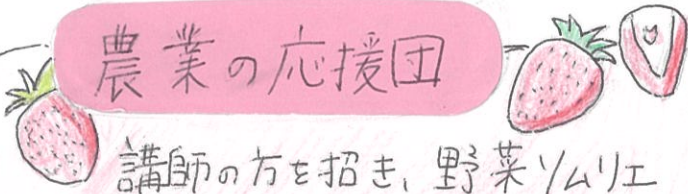 農業の応援団
講師の方を招き、野菜ソムリエ